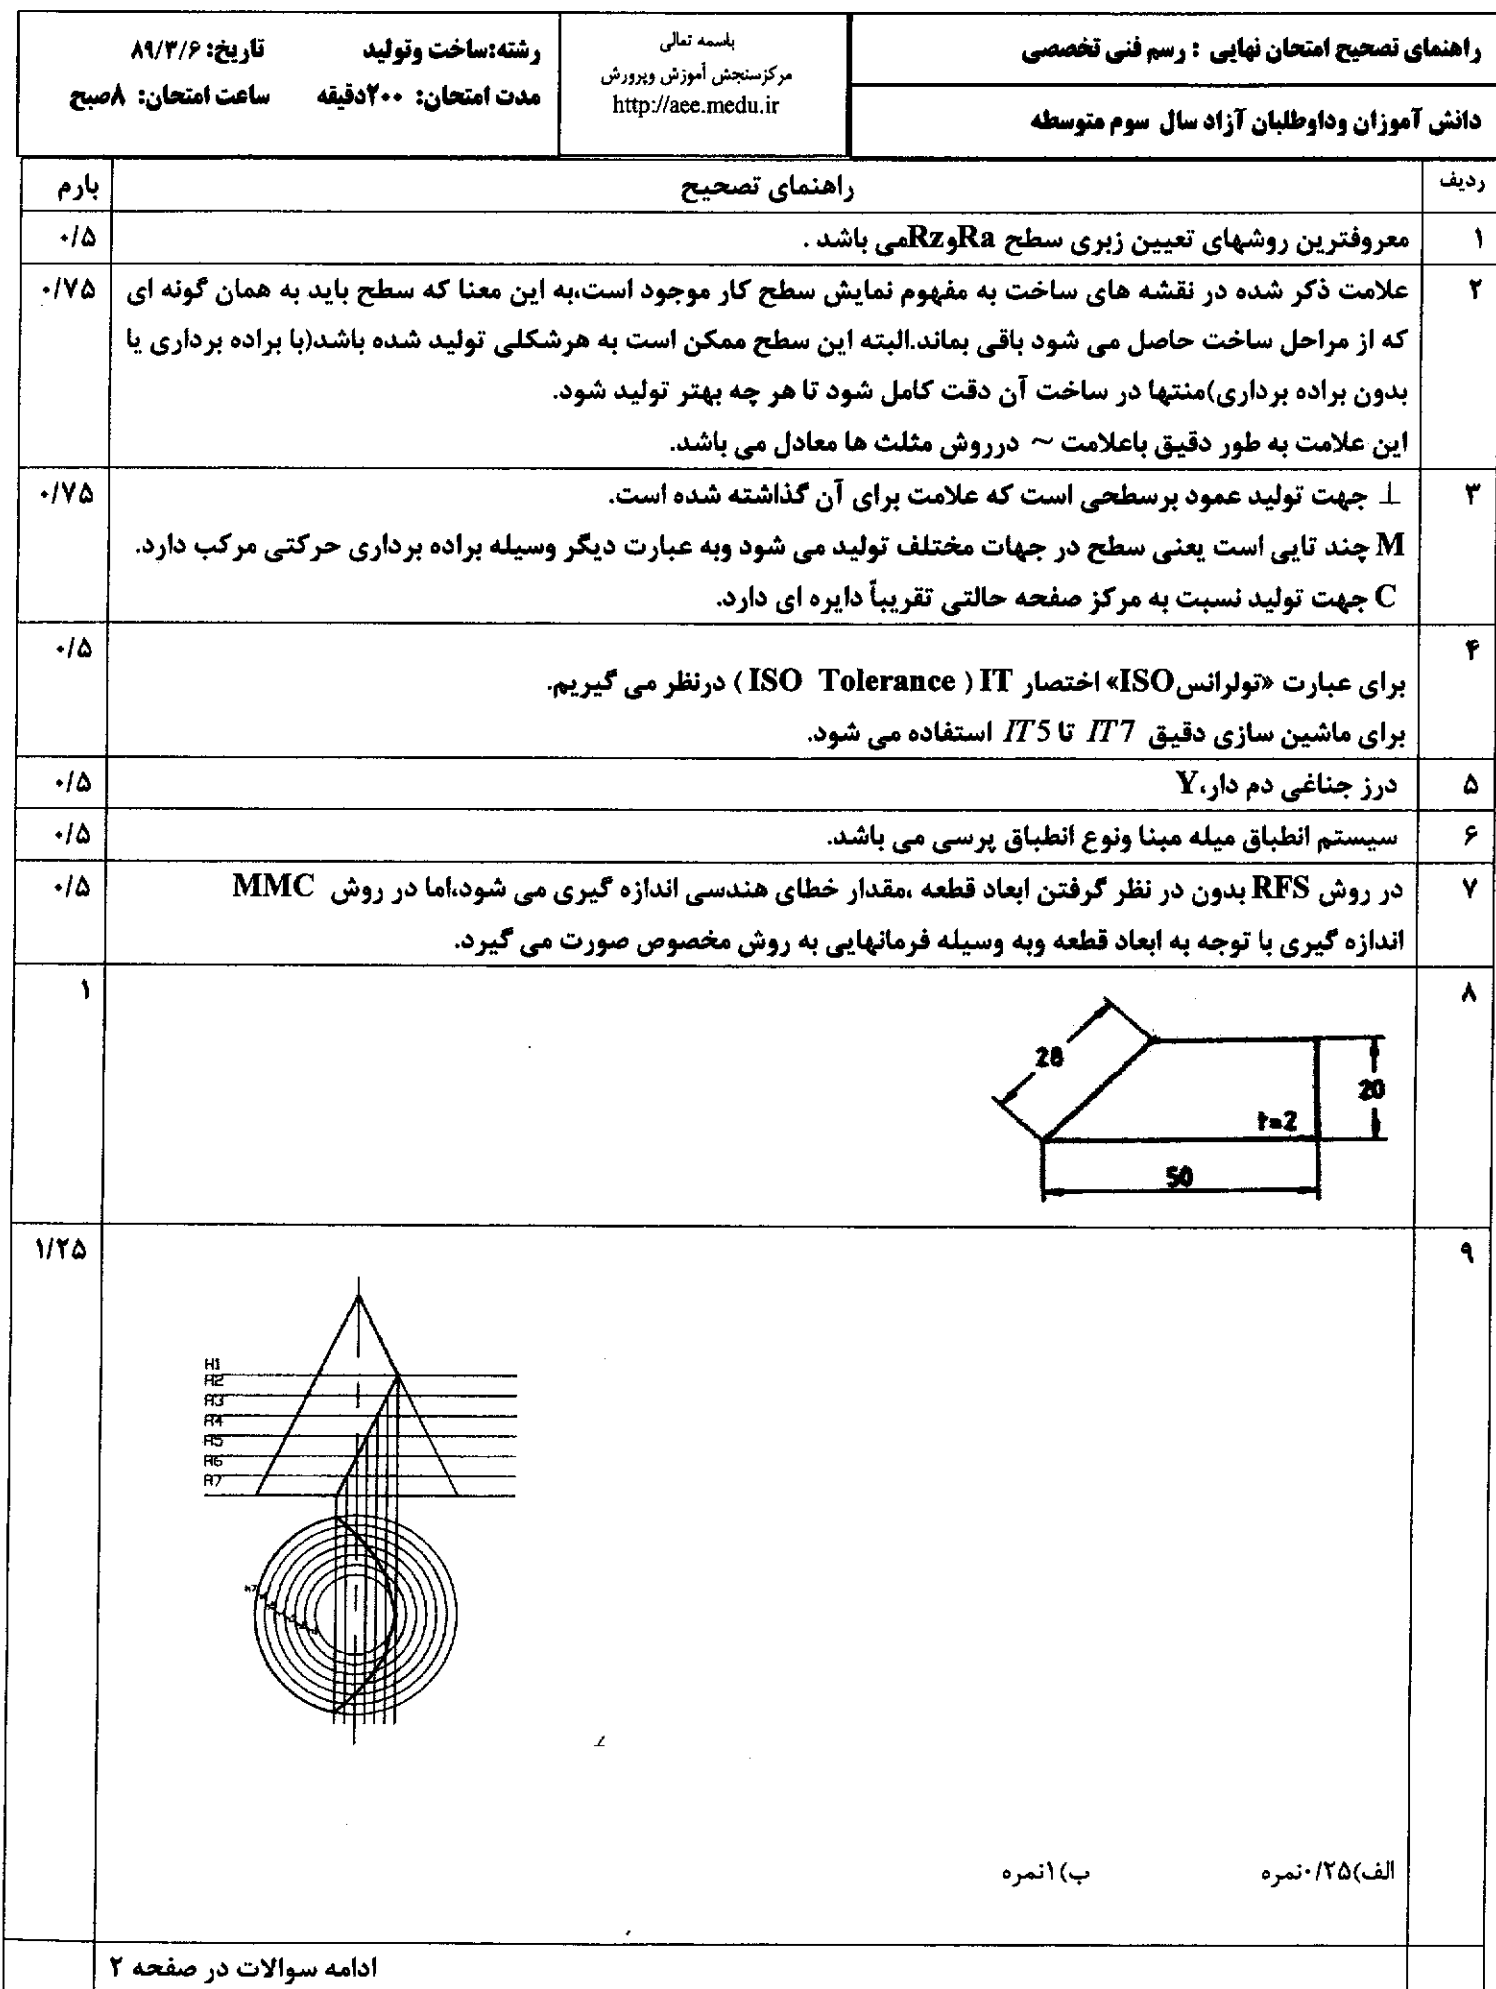 راهنمای تصحیح امتحان نهایی : رسم فنی تخصصی
دانش آموزان وداوطلبان آزاد سال سوم متوسطه
باسمه تعالی
مرکزسنجش آموزش وپرورش
http://aee.medu.ir
رشته:ساخت وتولید تاریخ: ۸۹/۳/۶
مدت امتحان: ۲۰۰دقیقه ساعت امتحان: ۸صبح
ردیف راهنمای تصحیح بارم
۱ معروفترین روشهای تعیین زبری سطح RaوRzمی باشد . ۰/۵
۲ علامت ذکر شده در نقشه های ساخت به مفهوم نمایش سطح کار موجود است،به این معنا که سطح باید به همان گونه ای ۰/۷۵
که از مراحل ساخت حاصل می شود باقی بماند.البته این سطح ممکن است به هرشکلی تولید شده باشد(با براده برداری یا
بدون براده برداری)منتها در ساخت آن دقت کامل شود تا هر چه بهتر تولید شود.
این علامت به طور دقیق باعلامت ~ درروش مثلث ها معادل می باشد.
۳ ⊥ جهت تولید عمود برسطحی است که علامت برای آن گذاشته شده است. ۰/۷۵
M چند تایی است یعنی سطح در جهات مختلف تولید می شود وبه عبارت دیگر وسیله براده برداری حرکتی مرکب دارد.
C جهت تولید نسبت به مرکز صفحه حالتی تقریباً دایره ای دارد.
۴ ۰/۵
برای عبارت «تولرانسISO» اختصار IT ( ISO Tolerance ) درنظر می گیریم.
برای ماشین سازی دقیق IT7 تا IT5 استفاده می شود.
۵ درز جناغی دم دار،Y ۰/۵
۶ سیستم انطباق میله مبنا ونوع انطباق پرسی می باشد. ۰/۵
۷ در روش RFS بدون در نظر گرفتن ابعاد قطعه ،مقدار خطای هندسی اندازه گیری می شود،اما در روش MMC ۰/۵
اندازه گیری با توجه به ابعاد قطعه وبه وسیله فرمانهایی به روش مخصوص صورت می گیرد.
۸ ۱
28
20
t=2
50
۹ ۱/۲۵
A1
A2
A3
A4
A5
A6
A7
الف)۰/۲۵نمره ب)۱نمره
ادامه سوالات در صفحه ۲